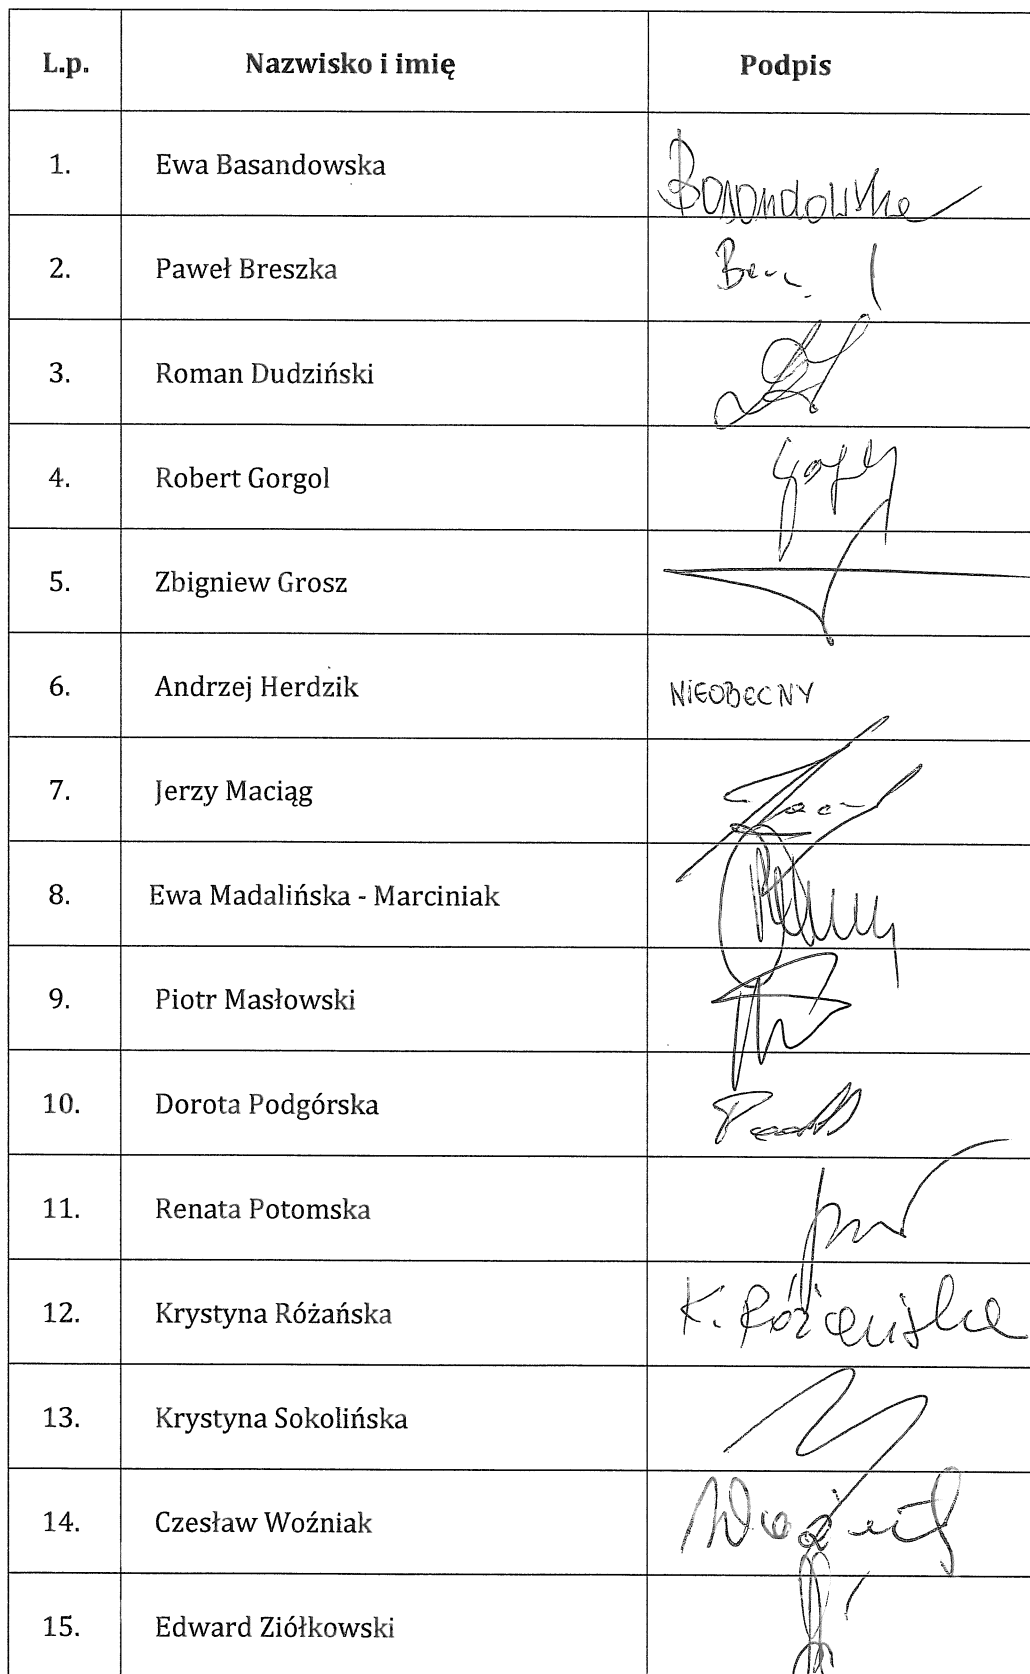 L.p. Nazwisko i imię Podpis
1. Ewa Basandowska Basandowska
2. Paweł Breszka
3. Roman Dudziński
4. Robert Gorgol
5. Zbigniew Grosz
6. Andrzej Herdzik NIEOBECNY
7. Jerzy Maciąg
8. Ewa Madalińska - Marciniak
9. Piotr Masłowski
10. Dorota Podgórska
11. Renata Potomska
12. Krystyna Różańska K. Różańska
13. Krystyna Sokolińska
14. Czesław Woźniak Woźniak
15. Edward Ziółkowski